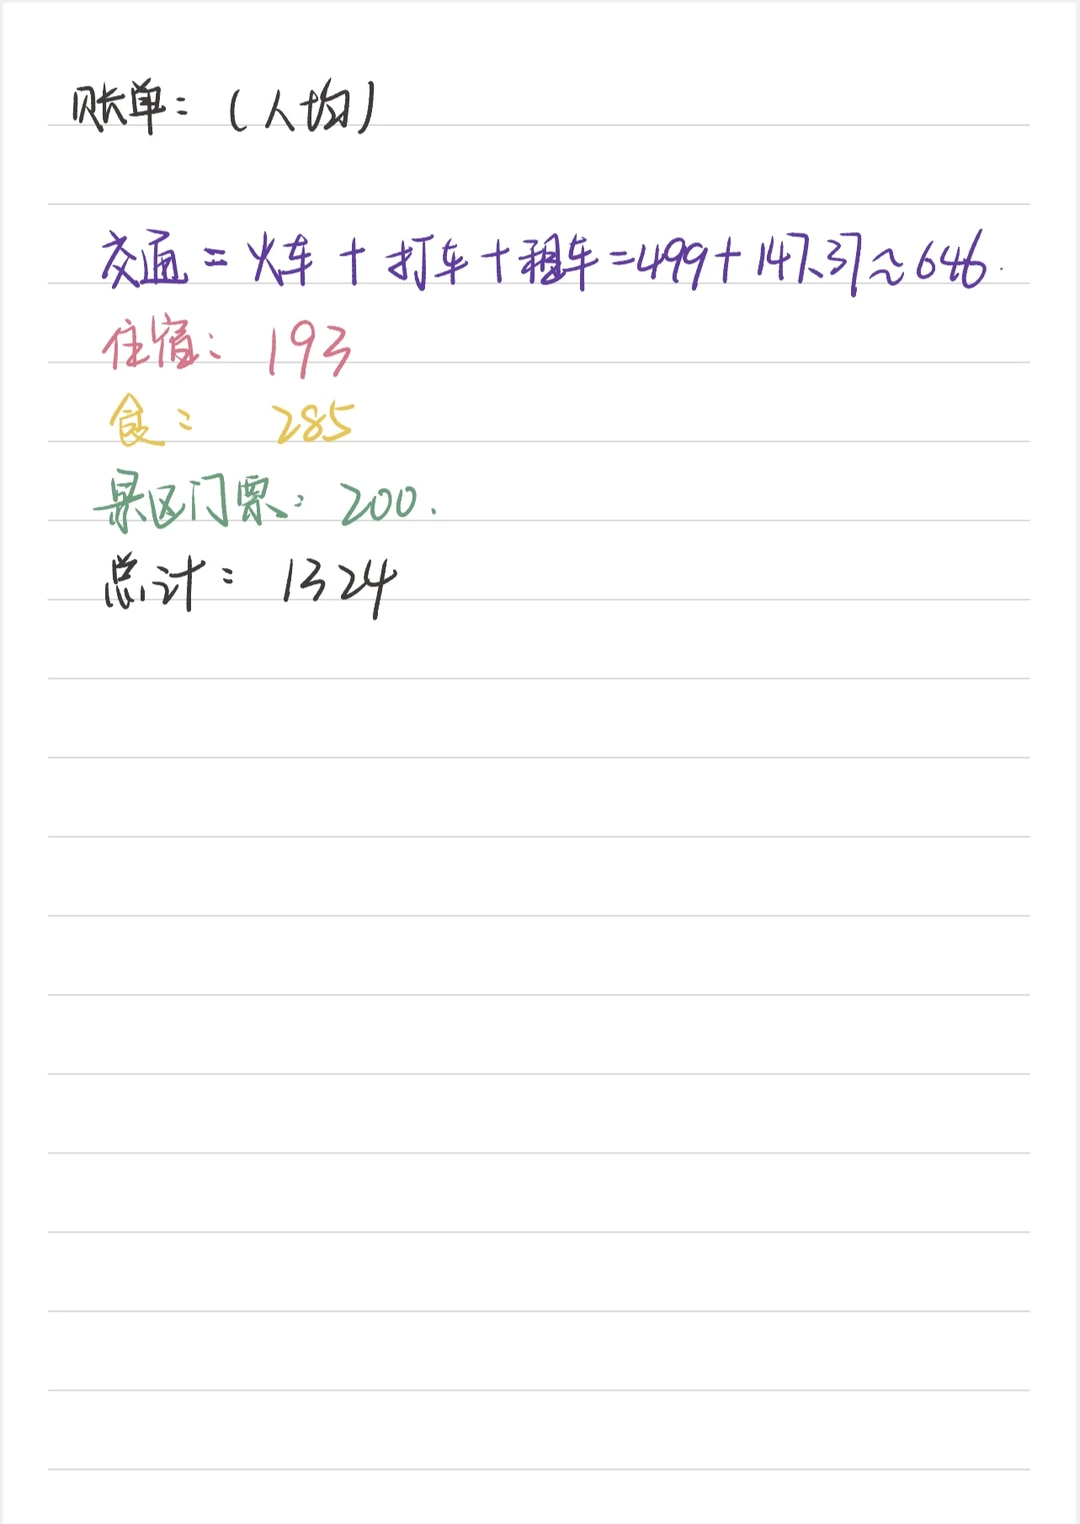 账单：（人均）
交通 = 火车 + 打车 + 租车 = 499 + 147.37 ≈ 646.
住宿： 193
食： 285
景区门票： 200.
总计： 1324